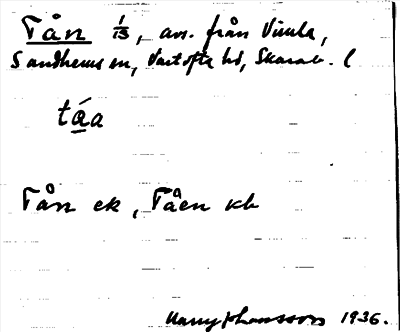 Tån 1/3, avs. från Vimla,
Sandhems sn, Vartofta hd, Skarab. l
táa
Tån ek, Tåen kb
Harry Johansson 1936.